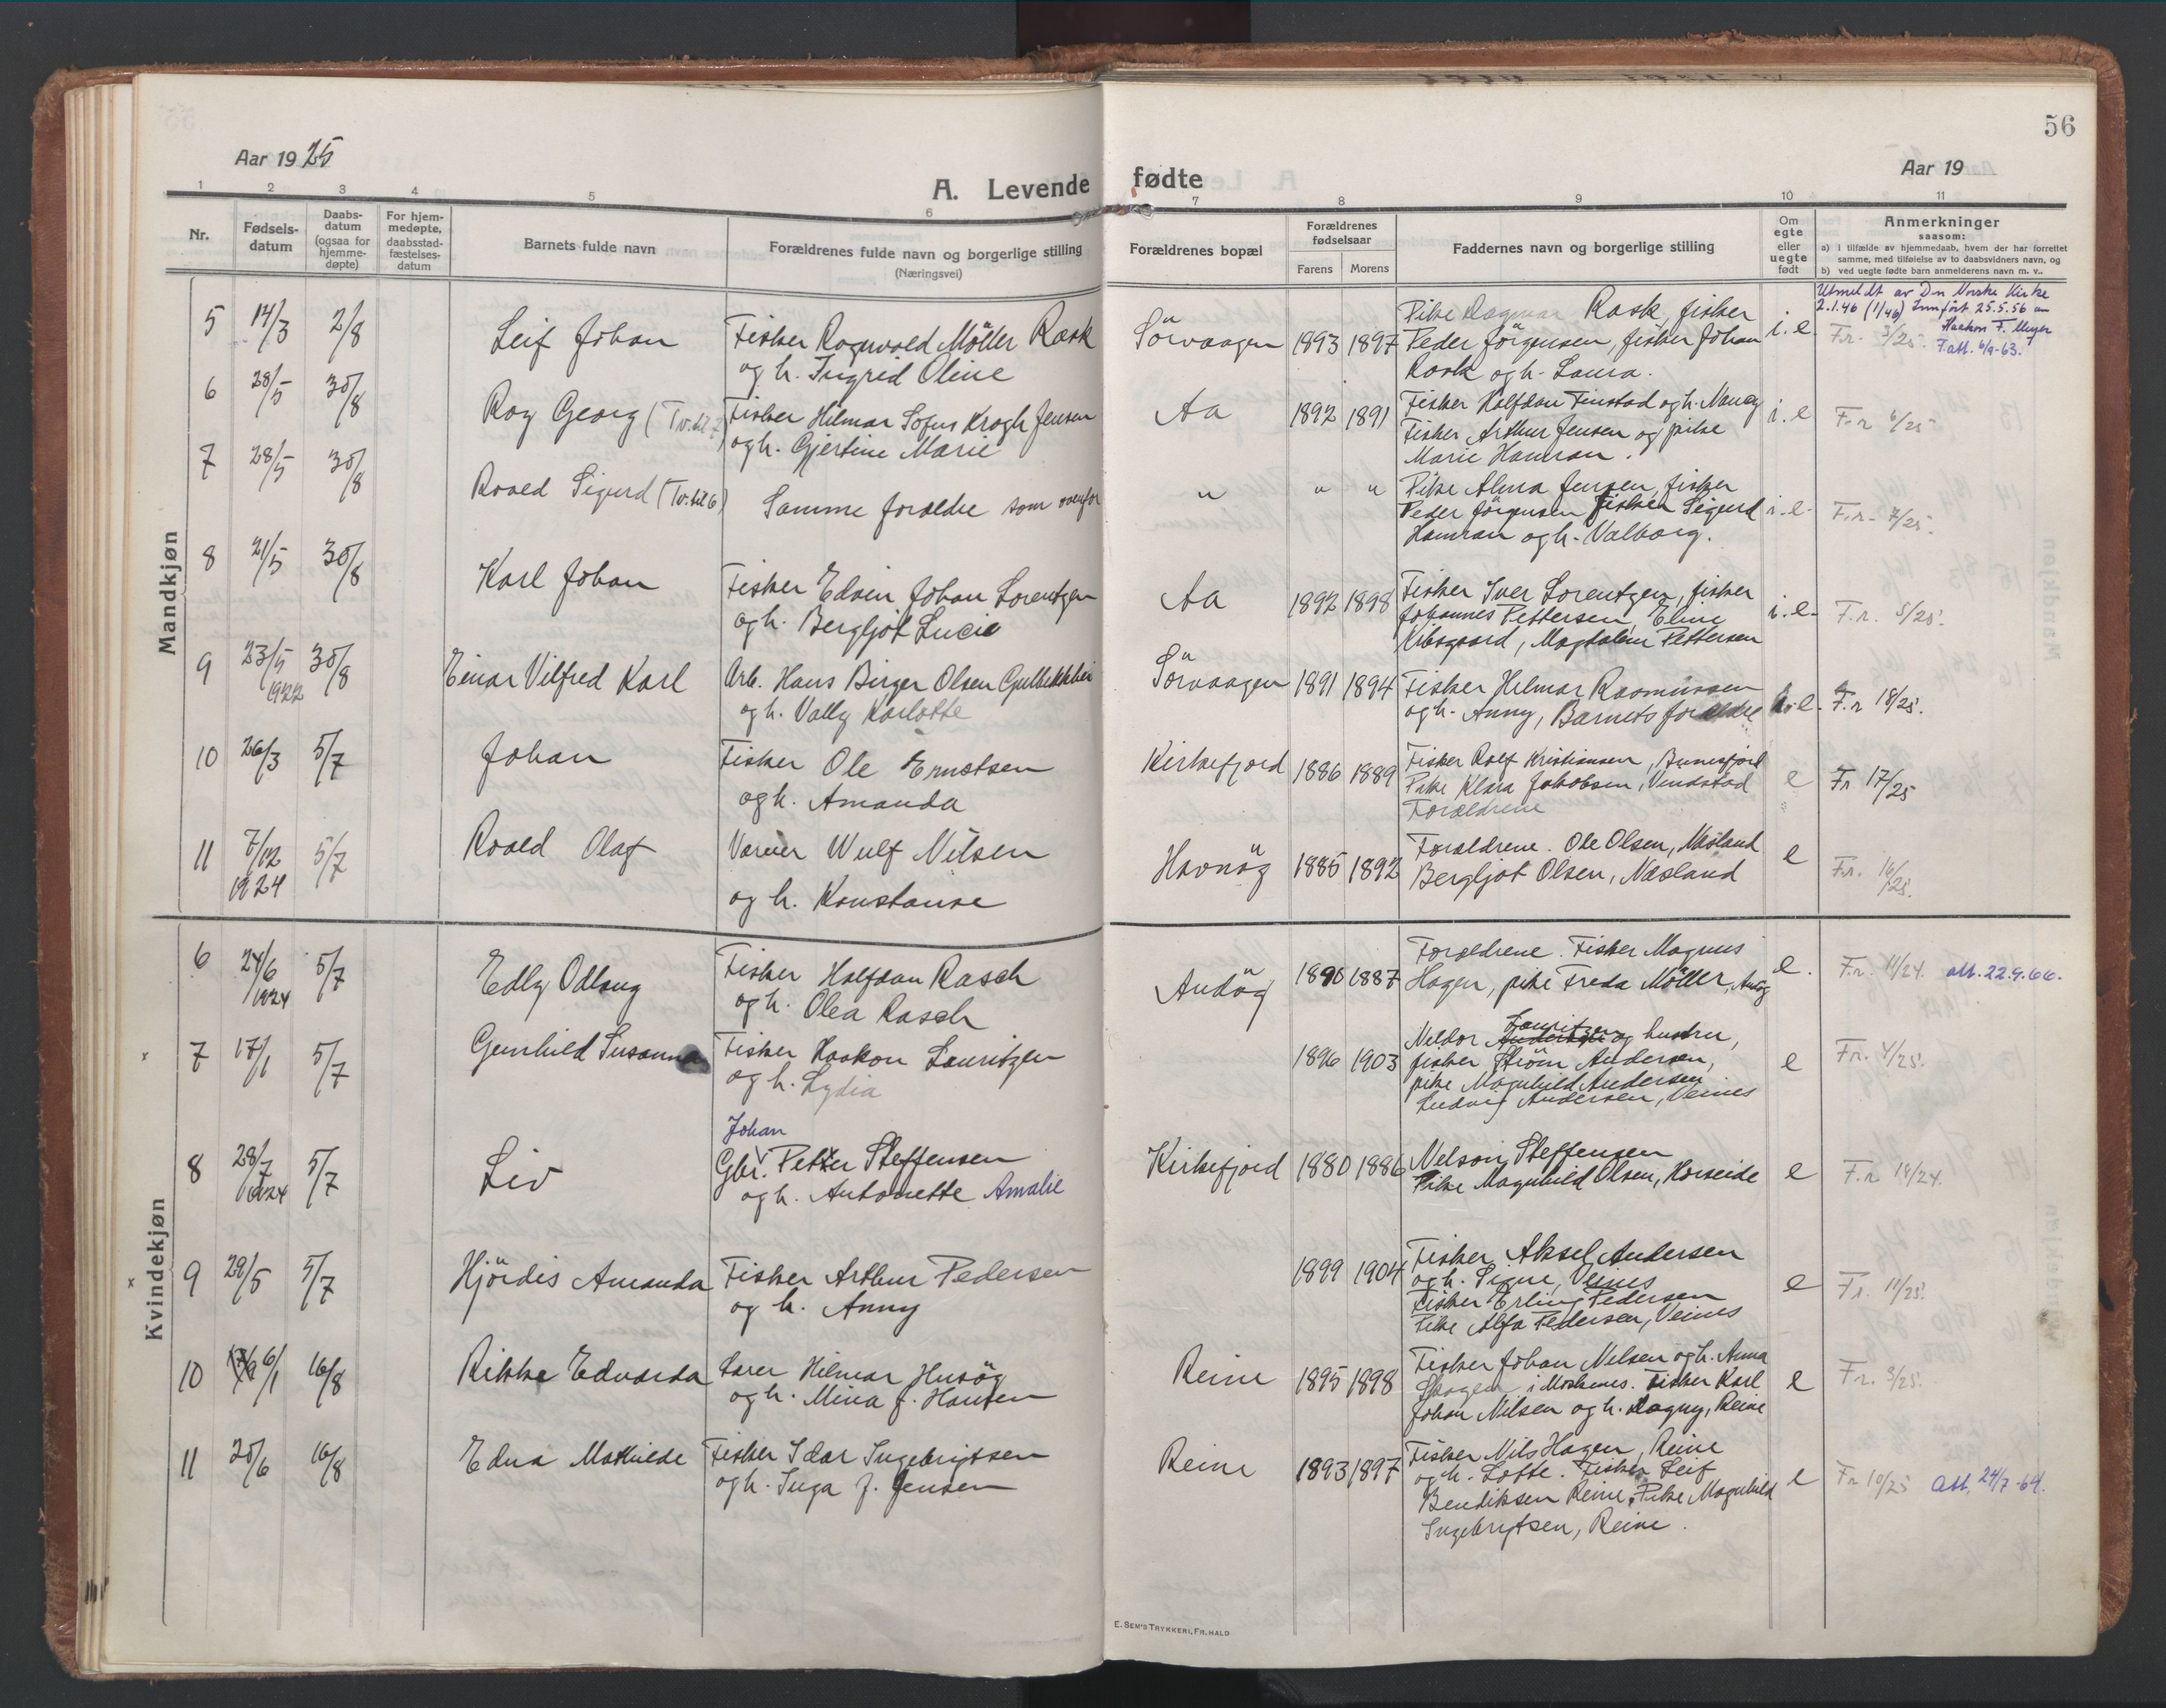 56
Aar 1925
Aar 19
A. Levende fødte
1 2 3 4 5 6 7 8 9 10 11
Nr.
Fødsels-
datum
Daabs-
datum
(ogsaa for
hjemme-
døpte)
For hjem-
medøpte,
daabsstad-
fæstelses-
datum
Barnets fulde navn
Forældrenes fulde navn og borgerlige stilling
(Næringsvei)
Forældrenes bopæl
Forældrenes
fødselsaar
Farens Morens
Faddernes navn og borgerlige stilling
Om
egte
eller
uegte
født
Anmerkninger
saasom:
a) i tilfælde av hjemmedaab, hvem der har forrettet
samme, med tilføielse av to daabsvidners navn, og
b) ved uegte fødte barn anmelderens navn m. v..
Mandkjøn
5 14/3 2/8 Leif Johan
Fisker Ragnvald Möller Rask
og h. Ingrid Oline
Sörvaagen 1893 1897
Pike Dagmar Rask, fisker
Peder Jörgensen, fisker Johan
Rask og h. Laura.
i. e.
Utmeldt av Den Norske Kirke
2.1.46 (1/46) Innfört 25.5.56
Haakon F. Meyer
F.att. 6/9-63.
F.r. 3/25.
6 28/5 30/8 Roy Georg (Tv. til 7)
Fisker Hilmar Sofus Krogh Jensen
og h. Gjertine Marie
Aa 1892 1891
Fisker Halfdan Finstad og h. Nancy
Fisker Arthur Jensen og pike
Marie Hamran.
i. e
F.r 6/25
7 28/5 30/8 Roald Sigurd (Tv. til 6)
Samme foraldre som ovenfor
" " "
Pike Alma Jensen, fisker
Peder Jörgensen Fisker Sigurd
Hamran og h. Valborg.
i. e.
F.r. 7/25.
8 21/5 30/8 Karl Johan
Fisker Edvin Johan Lorentzen
og h. Bergljot Lucie
Aa 1892 1898
Fisker Iver Lorentzen, fisker
Johannes Pettersen, Eline
Kibsgaard, Magdalene Pettersen
i. e.
F.r. 5/25.
9 23/5 1922 30/8 Einar Vilfred Karl
Arb. Hans Birger Olsen
og h. Vally Karlotte
Sörvaagen 1891 1894
Fisker Hilmar Rasmussen
og h. Anny, Barnets foraldre
e.
F.r 18/25.
10 26/3 5/7 Johan
Fisker Ole Ernstsen
og h. Amanda
Kirkefjord 1886 1889
Fisker Rolf Kristiansen, Bunesfjord
Pike Klara Jakobsen, Vindstad
Foraldrene
e
Fr 17/25
11 7/12 1924 5/7 Roald Olaf
Varmer Wulf Nilsen
og h. Konstanse
Havnöy 1885 1892
Foraldrene. Ole Olsen, Næsland
Bergljot Olsen, Næsland
e
F.r. 16/25.
Kvindekjøn
6 24/6 1924 5/7 Edly Odlaug
Fisker Halfdan Rasch
og h. Olea Rasch
Andöy 1890 1887
Foraldrene. Fisker Magnus
Hagen, pike Freda Möller, Andöy
e.
F.r. 11/24. att. 22.9.66.
x 7 17/1 5/7 Gunhild Susanna
Fisker Haakon Lauritzen
og h. Lydia
1896 1903
Lauritzen
Meldor Andersen og hustru,
fisker Ström Andersen,
pike Magnhild Andersen
Ludvig Andersen, Veines
e
Fr. 4/25.
8 28/7 1924 5/7 Liv
Johan
Gbr. Petter Steffensen
og h. Antonette Amalie
Kirkefjord 1880 1886
Nelson Steffensen
Pike Magnhild Olsen, Horseide
e
F.r 18/24.
x 9 29/5 5/7 Hjördis Amanda
Fisker Arthur Pedersen
og h. Anny
1899 1904
Fisker Aksel Andersen
og h. Signe, Veines
Fisker Erling Pedersen
Pike Alfa Pedersen, Veines
e
Fr. 11/25.
10 6/1 16/8 Rikke Edvarda
Lærer Hilmar Husöy
og h. Mina f. Hansen
Reine 1895 1898
Fisker Johan Nilsen og h. Anna
Skagen i Moskenes. Fisker Karl
Johan Nilsen og h. Dagny, Reine
e
Fr. 3/25.
11 20/6 16/8 Edna Mathilde
Fisker Idar Ingebrigtsen
og h. Inga f. Jensen
Reine 1893 1897
Fisker Nils Hagen, Reine
og h. Lotte. Fisker Leif
Bendiksen Reine, Pike Magnhild
Ingebrigtsen, Reine.
e
Fr 10/25 Att. 24/7-64.
E. SEM'S TRYKKERI, FR.HALD